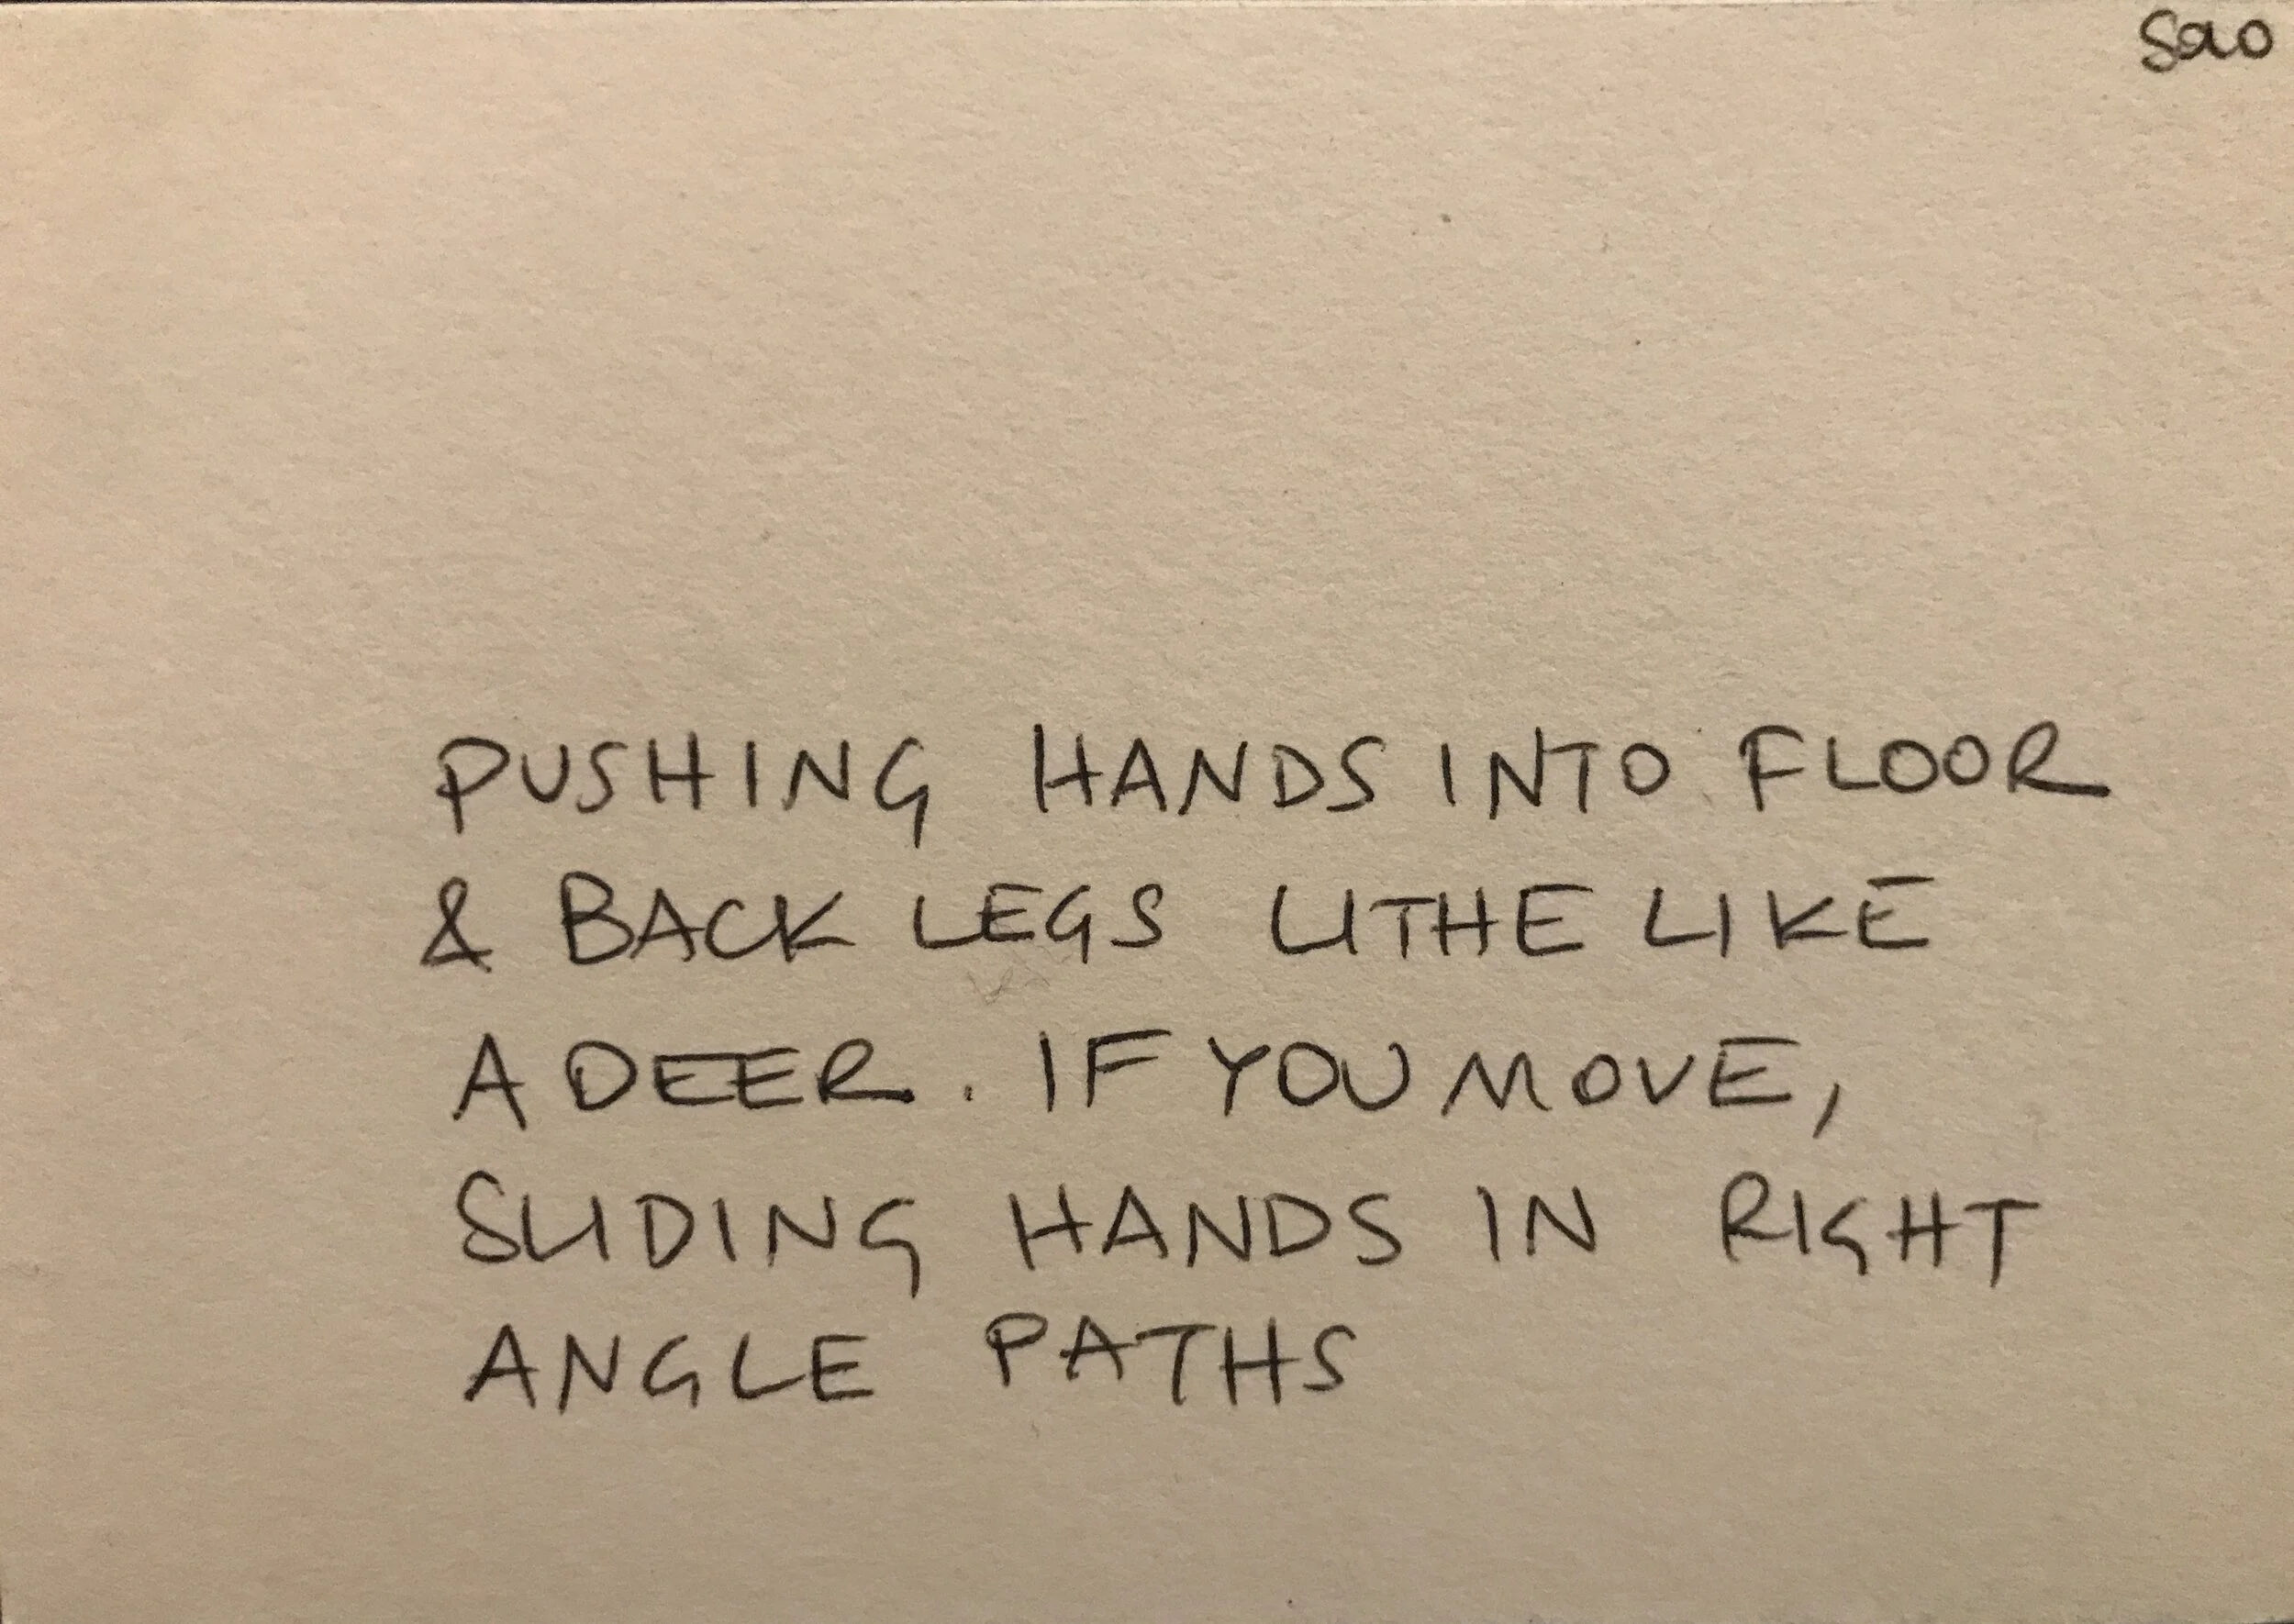 Sao
PUSHING HANDS INTO FLOOR
& BACK LEGS LITHE LIKE
A DEER. IF YOU MOVE,
SLIDING HANDS IN RIGHT
ANGLE PATHS